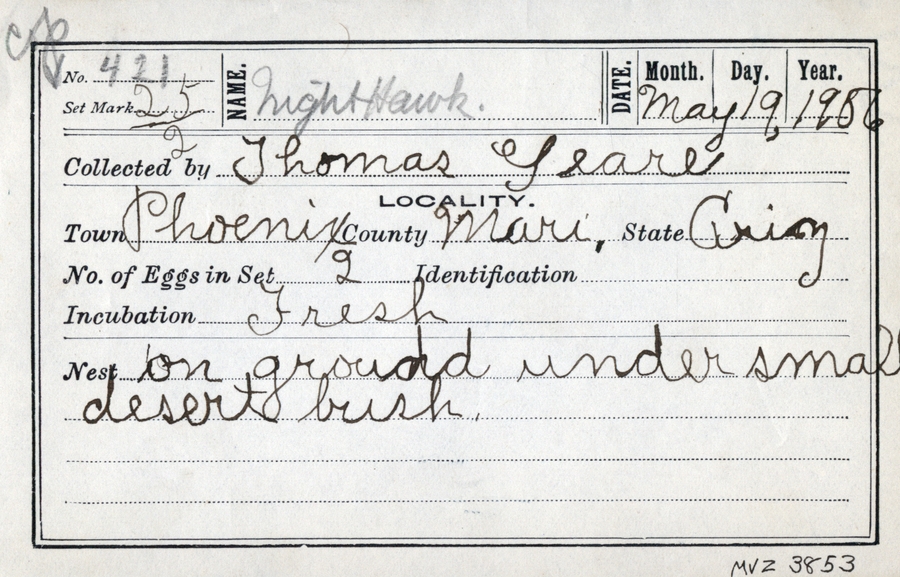 No. 421
Set Mark 25/2
NAME. NightHawk.
DATE. Month. Day. Year.
May 19, 1906
Collected by Thomas Geare
LOCALITY.
Town Phoenix County Mari, State
No. of Eggs in Set 2 Identification
Incubation Fresh
Nest on ground under small
desert bush.
MVZ 3853